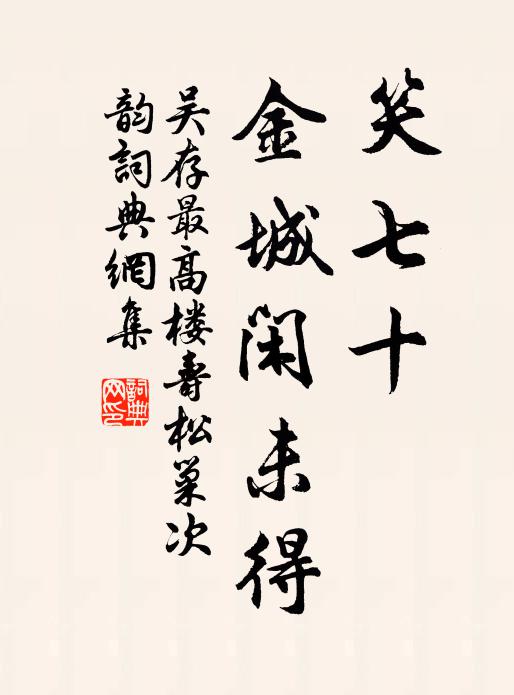 笑七十
金城闲未得
吴存最高楼寿松巢次
韵詞典網集
詞典網印